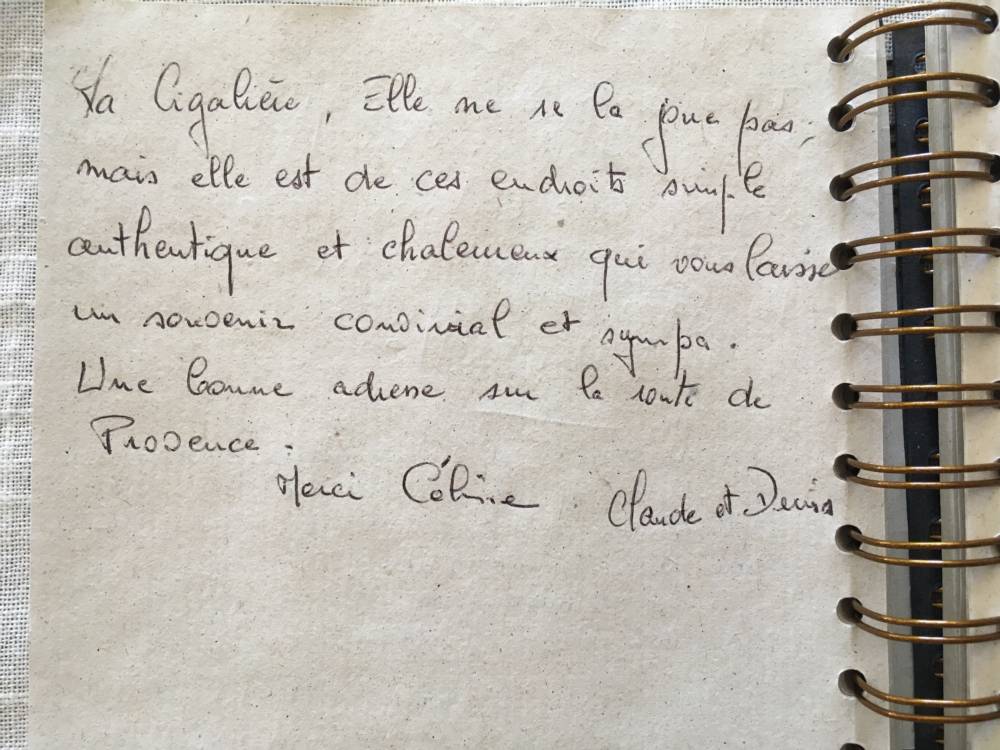 La Cigalière, Elle ne se la joue pas,
mais elle est de ces endroits simple
authentique et chaleureux qui vous laisse
un souvenir convivial et sympa.
Une bonne adresse sur la route de
Provence.
Merci Céline Claude et Denis